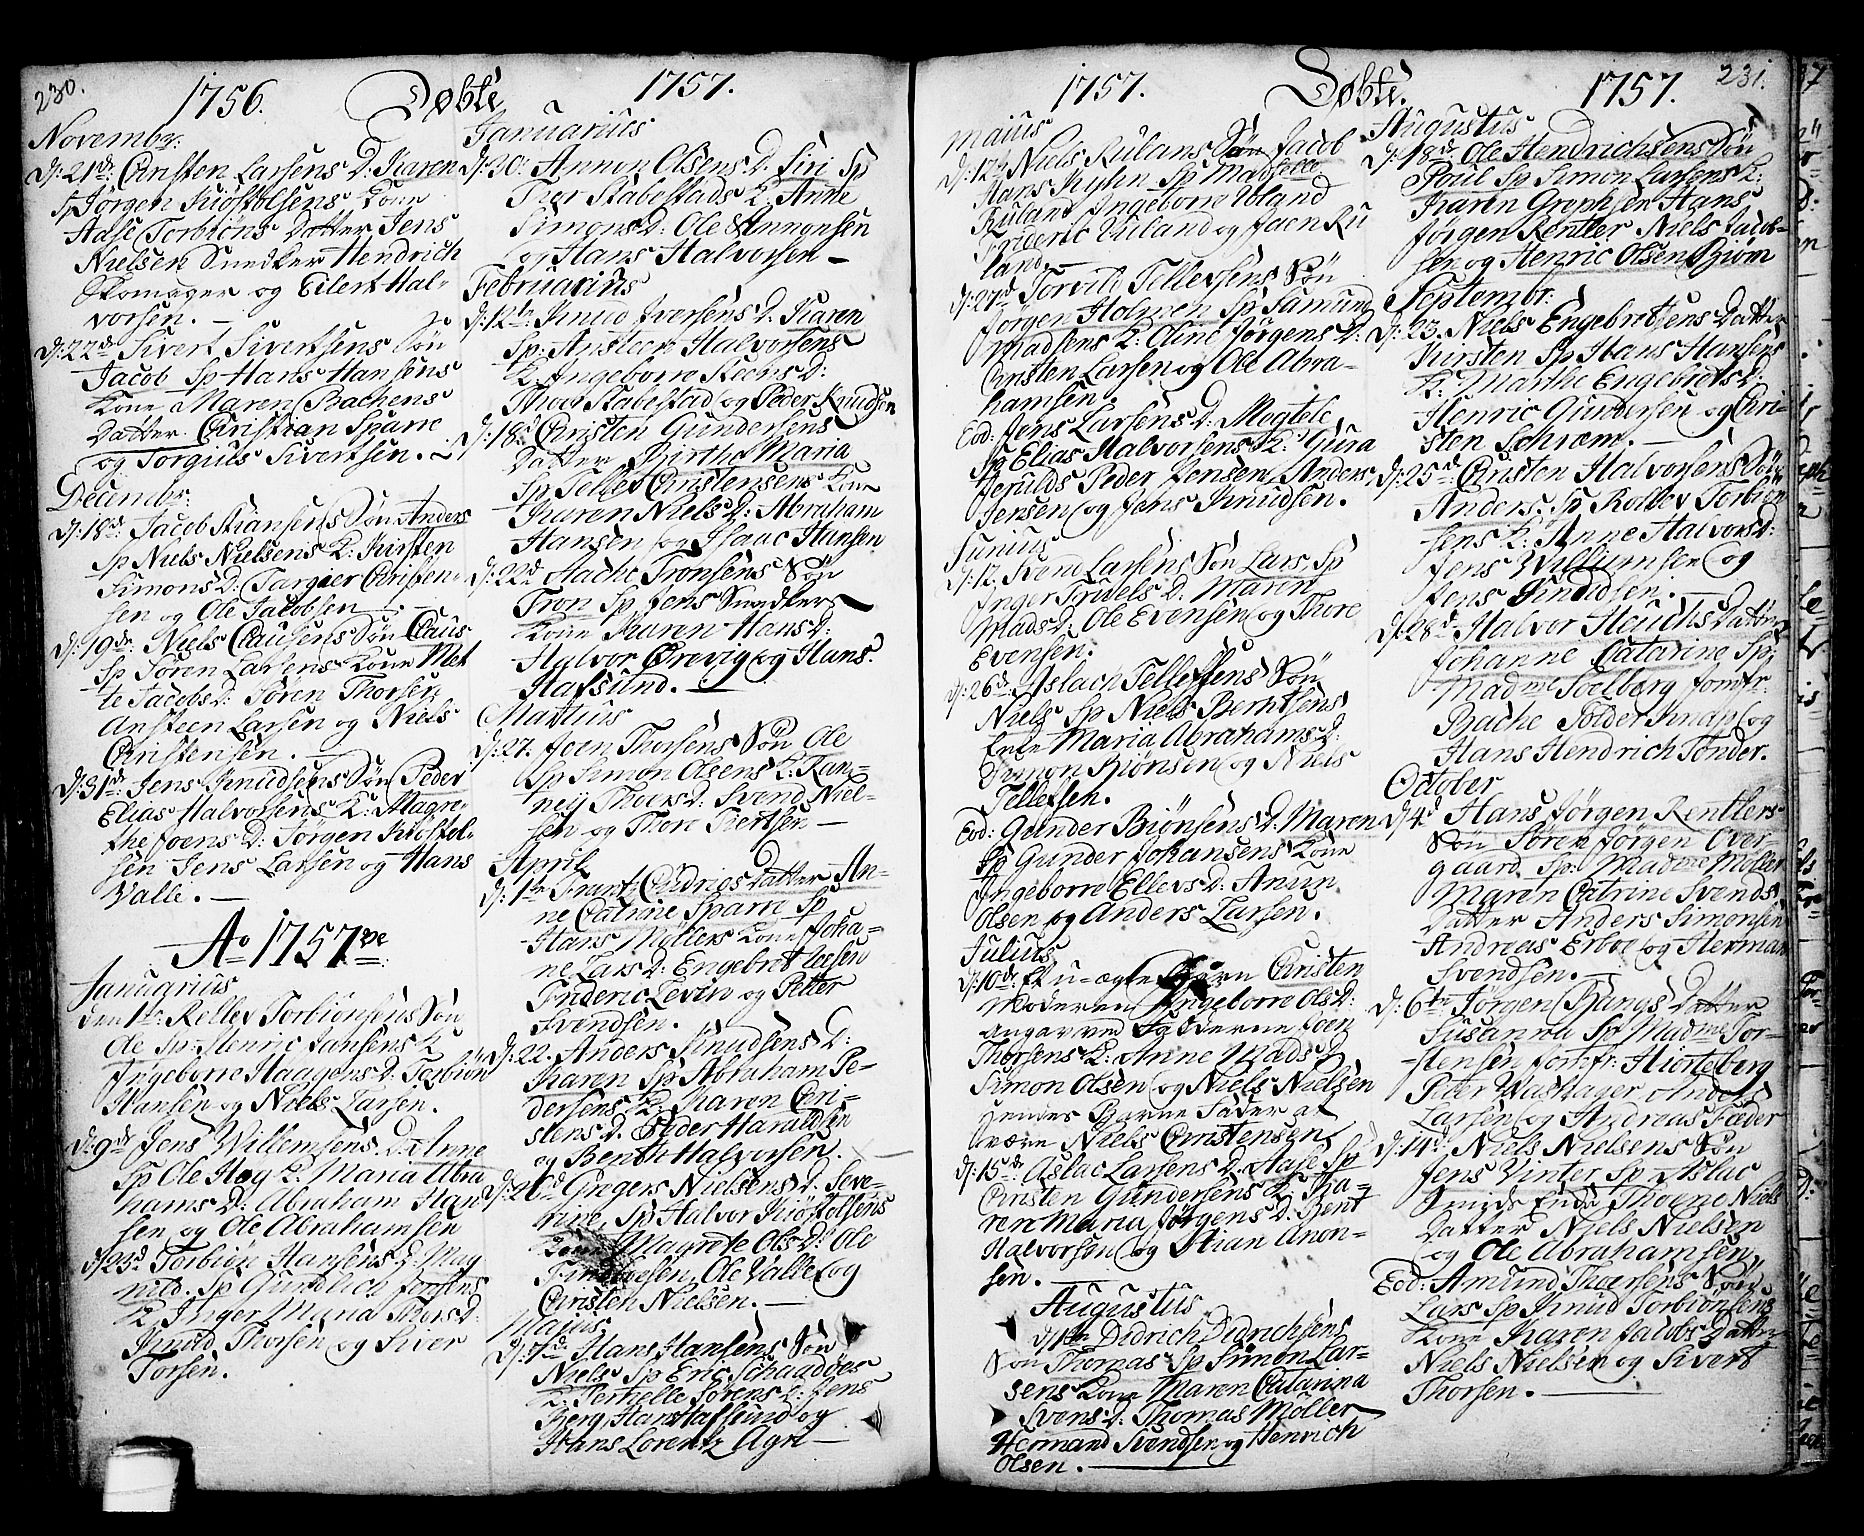 230.
1756. Døbte 1757.
November:
d: 21de Christen Larsens D. Karen
Sp Jørgen Kiøstolsens Kone
Aase Torbiøns Datter Jens
Nielsen Snedker Hendrich
Skomager og Eilert Hal-
vorsen. —
d: 22d Sivert Sivertsens Søn
Jacob Sp Hans Hansens
Kone Maren Bachens
Datter Christian Sparre
og Torgius Sivertsen.
Decembr:
d: 18de Jacob Stiansens Søn Anders
Sp Niels Nielsens K: Kirsten
Simons D: Targier Christen-
sen og Ole Jacobsen
d: 19de Niels Clausens Søn Claus
Sp Søren Larsens Kone Met
te Jacobs D: Søren Thorsen
Ansteen Larsen og Niels
Christensen. —
d: 31de Jens Knudsens Søn Peder
Elias Halvorsens K: Magre-
the Joens D: Jørgen Kiøstol-
sen Jens Larsen og Hans
Valle. —
Ao 1757ve
Januarius
den 1te Rollev Torbiønsens Søn
Ole Sp: Henric Jansens K
Ingeborre Haagens D. Torbiøn
Hansen og Niels Larsen.
d: 9de Jens Willemsens D. Anne
Sp Ole Høg K. Maria Abra
hams D: Abraham Han
sen og Ole Abrahamsen
d: 23d Torbiøn Hansens D. Mag
nild. Sp Gundlich Jersens
K. Inger Maria Thors D:
Knud Thorsen og Siver
Torsen.
Januarius
d: 30: Annon Olsens D. Siri Sp
Thor Stabestads K: Anne
Simons D: Ole Annonsen
og Hans Halvorsen —
Februarius
d: 12te Knud Iversens D. Karen
Sp: Ansteen Halvorsens
K. Ingeborre Steens D:
Thor Stabestad og Peder Knudsen
d: 18d Christen Gundersens
Datter Birthe Maria
Sp Tellev Christensens Kone
Karen Niels D: Abraham
Hansen og Isaac Hansen
d: 22d Aache Tronsens Søn
Tron Sp Jens Snedkers
Kone Karen Hans D:
Halvor Ørevig og Hans
Hafsund. —
Martius
d: 27. Joen Thorsens Søn Ole
Sp Simon Olsens K: Ran-
neij Thors D: Svend Niel-
sen og Thore Siertsen —
April
d: 1te Frantz Cudrios Datter An-
ne Catrine Sparre Sp
Hans Møllers Kone Joha-
ne Lars D: Engebret Joesen
Frideric Levin og Petter
Svendsen.
d: 22. Anders Knudsens D:
Karen Sp Abraham Pe-
dersens K. Karen Chri-
stens D. Peder Haraldsen
og Benth Halvorsen.
d: 26d Gregers Nielsens D. Seve-
rine Sp Halvor Kiøstolsens
Kone Magrete Ols D: Ole
Ole Valle og
Christen Nielsen. —
Majus
d: 7de Hans Hansens Søn
Niels Sp Eric Schaadøes
K. Pernelle Sørens D: Jens
Berg, Hans Hafsund og
Hans Lorentz Agri —
1757. Døbte. 1757. 231.
Maius
d: 12te Niels Rulans Søn Jacob
Hans Kyhn Sp
Ruland Ingeborre Ubland
Frideric Ruland og Joen Ru
land. —
d: 27d Torvild Tellefsens Søn
Jørgen Holmen Sp Samund
Madsens K: Eline Jørgens D:
Christen Larsen og Ole Abra-
hamsen.
Eod: Jens Larsens D: Magtele
Sp Elias Halvorsens K: Giura
Jerulds Peder Jensen Anders
Jensen og Jens Knudsen.
Junius
d: 12. Svend Larsens Søn Lars. Sp
Inger Truels D. Maren
Mads D: Ole Evensen og Thore
Evensen.
d: 26d Aslach Tellefsens Søn
Niels Sp Niels Berntsens
Enke Maria Abrahams D:
Simon Biønsen og Niels
Tellefsen.
Eod: Gunder Biønsens D. Maren
Sp Gunder Johansens Kone
Ingeborre Ellevs D: Anun
Olsen og Anders Larsen.
Julius
d: 10de Et u-ægte Barn Christen
Moderen Ingeborre Ols D:
angav ved Fadderne Joen
Thorsens K: Anne Mads D
Simon Olsen og Niels Nielsen
hendes Barne Fader at
være Niels Christensen
d: 15de Aslac Larsens D. Aase Sp
Christen Gundersens K. Ka-
ren Maria Jørgens D: Bent
Halvorsen og Stian Anon-
sen. —
Augustus
d: 1te Didrich Didrichsens
Søn Thomas Sp Simon Lar-
sens Kone Maren Catarina
Svens D: Thomas Møller
Hermand Svendsen og Henrich
Olsen. —
Augustus
d: 18de Ole Hendrichsens Søn
Poul Sp Simon Larsens K:
Karen Hans
Jørgen Rentler Niels Jacob-
sen og Henric Olsen Biørn
Septembr:
d: 23. Niels Engebretsens Datter
Kirsten Sp Hans Hansens
K: Marthe Engebrets D:
Henric Gundersen og Chri-
sten Schram. —
d: 25de Christen Halvorsens Søn
Anders. Sp Rollev Torbiøn
sens K: Anne Halvors D:
Jens Williumsen og
Jens Knudsen. —
d: 28d Halvor Heuchs Datter
Johanne Catarine Sp:
Madme Soelberg Jomfr.
Bache Peder Knap og
Hans Hendrich Tønder.
October
d: 4d Hans Jørgen Rentlers
Søn Søren Jørgen Over-
gaard. Sp: Madme Møller
Maren Catrine Svends
Datter Anders Simonsen
Andreas Erboe og Herman
Svendsen. —
d: 6te Jørgen Bangs Datter
Susanna Sp Madme Tor-
stensen Jomfr: Hiorteberg
Peter Anders
Larsen og Andreas Fæder
d: 14d Niels Nielsens Søn
Jens Vinter Sp Aslac
Smids Enke Thorne Niels
Datter Niels Nielsen
og Ole Abrahamsen
Eod: Amund Thorsens Søn
Lars Sp Knud Torbiønsens
Kone Karen Jacobs Datter
Niels Nielsen og Sivert
Thorsen. —